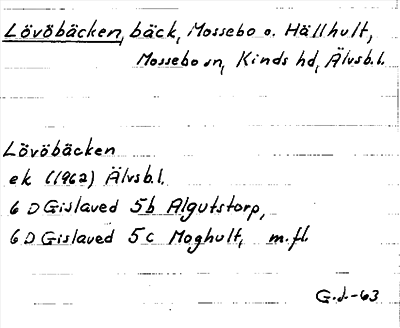 Lövöbäcken, bäck, Mossebo o. Hällhult,
Mossebo sn, Kinds hd, Älvsb.l.
Lövöbäcken
ek (1962) Älvsb.l.
6 D Gislaved 5b Algutstorp,
6 D Gislaved 5c Moghult, m.fl.
G.J.-63